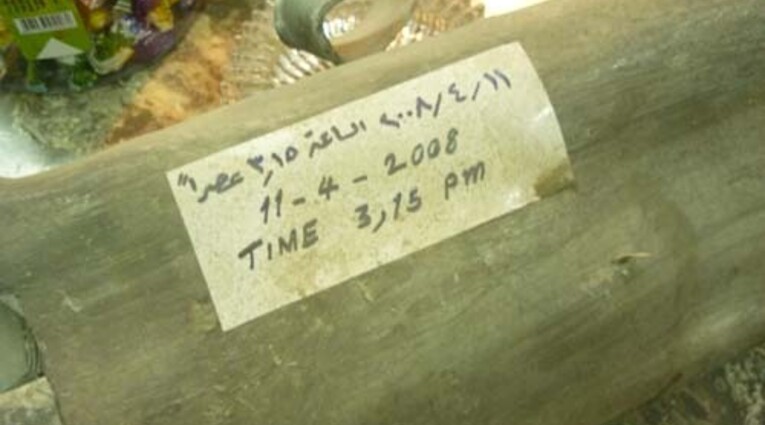 ١١/٤/٢٠٠٨ الساعة ٣,١٥ عصرا"
11-4-2008
TIME 3,15 pm